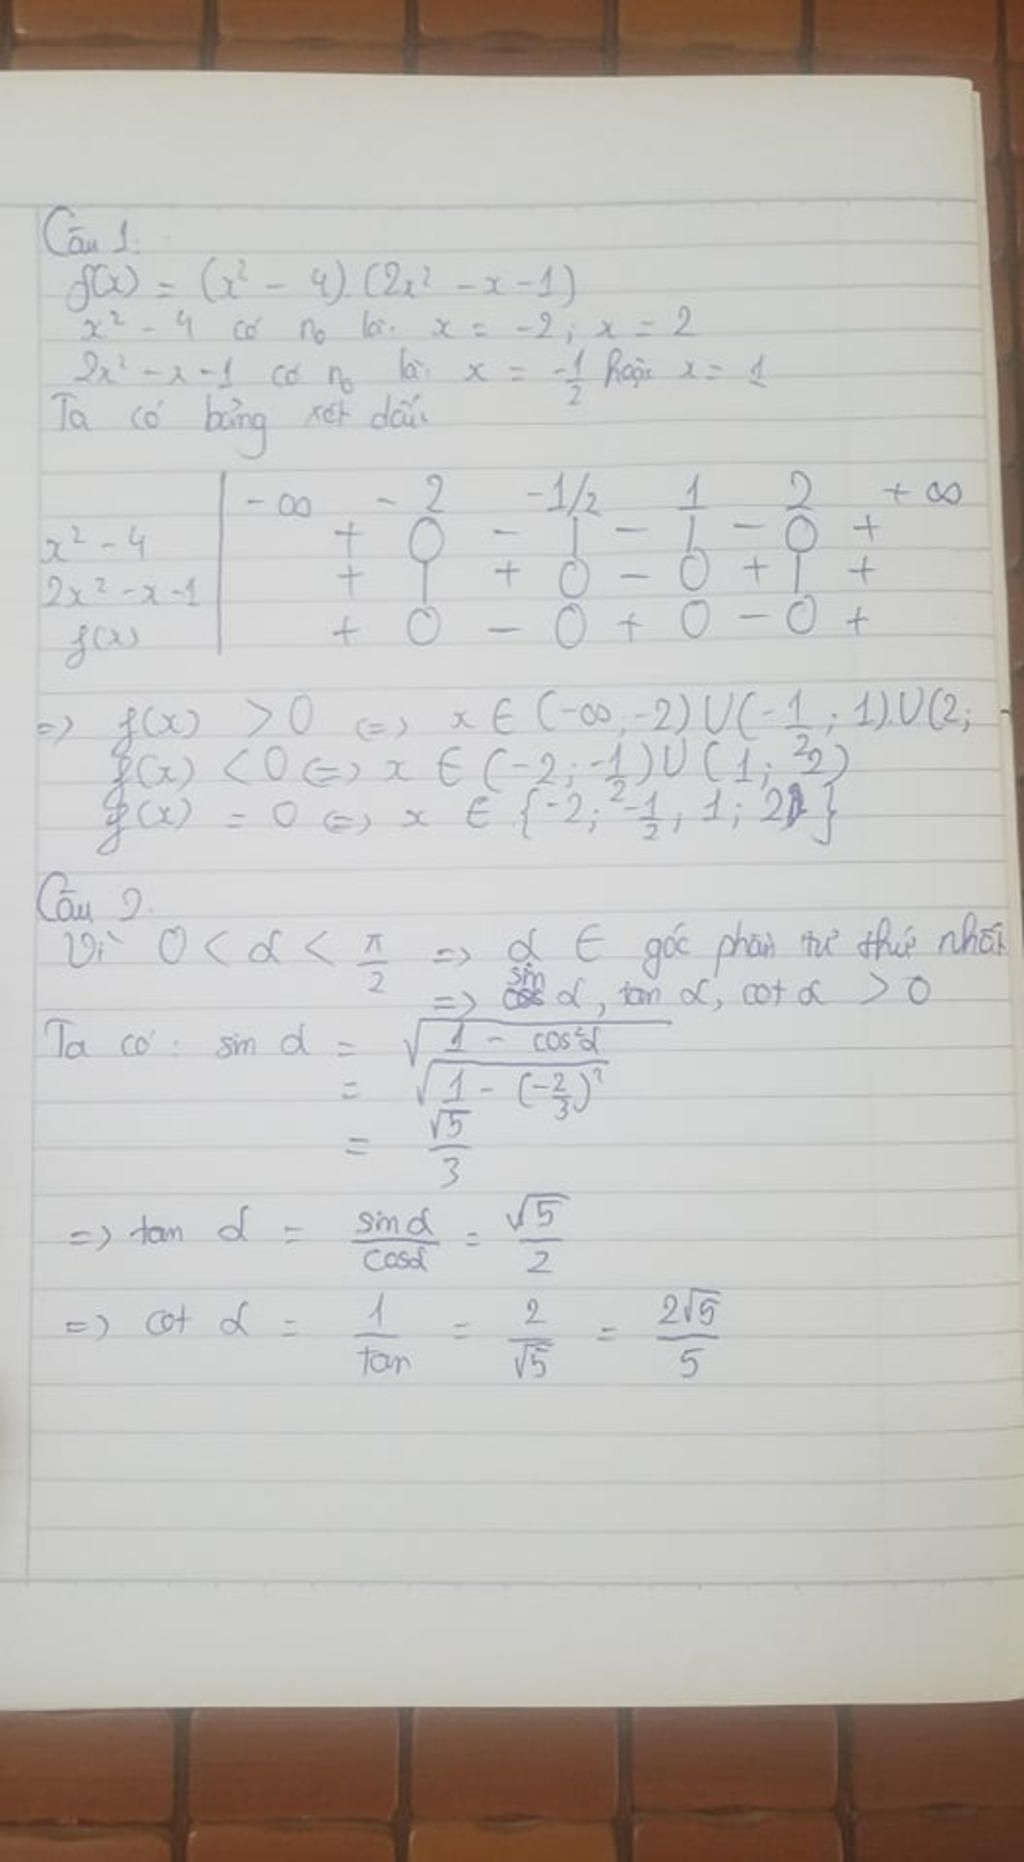 Câu 1.
f(x) = (x² - 4).(2x² - x - 1)
x² - 4 có nₒ là: x = -2; x = 2
2x² - x - 1 có nₒ là: x = -1/2 hoặc x = 1
Ta có bảng xét dấu
-∞ -2 -1/2 1 2 +∞
x² - 4 + 0 - | - | - 0 +
2x² - x - 1 + | + 0 - 0 + | +
f(x) + 0 - 0 + 0 - 0 +
=> f(x) > 0 <=> x ∈ (-∞; -2) ∪ (-1/2; 1) ∪ (2;
f(x) < 0 <=> x ∈ (-2; -1/2) ∪ (1; 2)
f(x) = 0 <=> x ∈ {-2; -1/2; 1; 2}
Câu 2.
Vì 0 < α < π/2 => α ∈ góc phần tư thứ nhất
=> sin α, tan α, cot α > 0
Ta có: sin α = √(1 - cos²α)
= √(1 - (-2/3)²)
= √5/3
=> tan α = sinα/cosα = √5/2
=> cot α = 1/tan = 2/√5 = 2√5/5